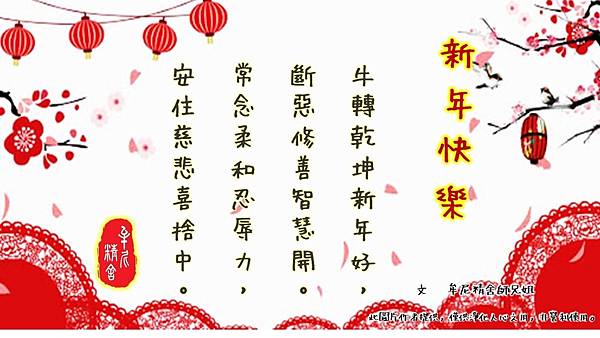 新年快樂
牛轉乾坤新年好，
斷惡修善智慧開。
常念柔和忍辱力，
安住慈悲喜捨中。
牟尼精舍
文 牟尼精舍師兄姐
此圖片作者提供，僅供淨化人心之用，非營利使用。